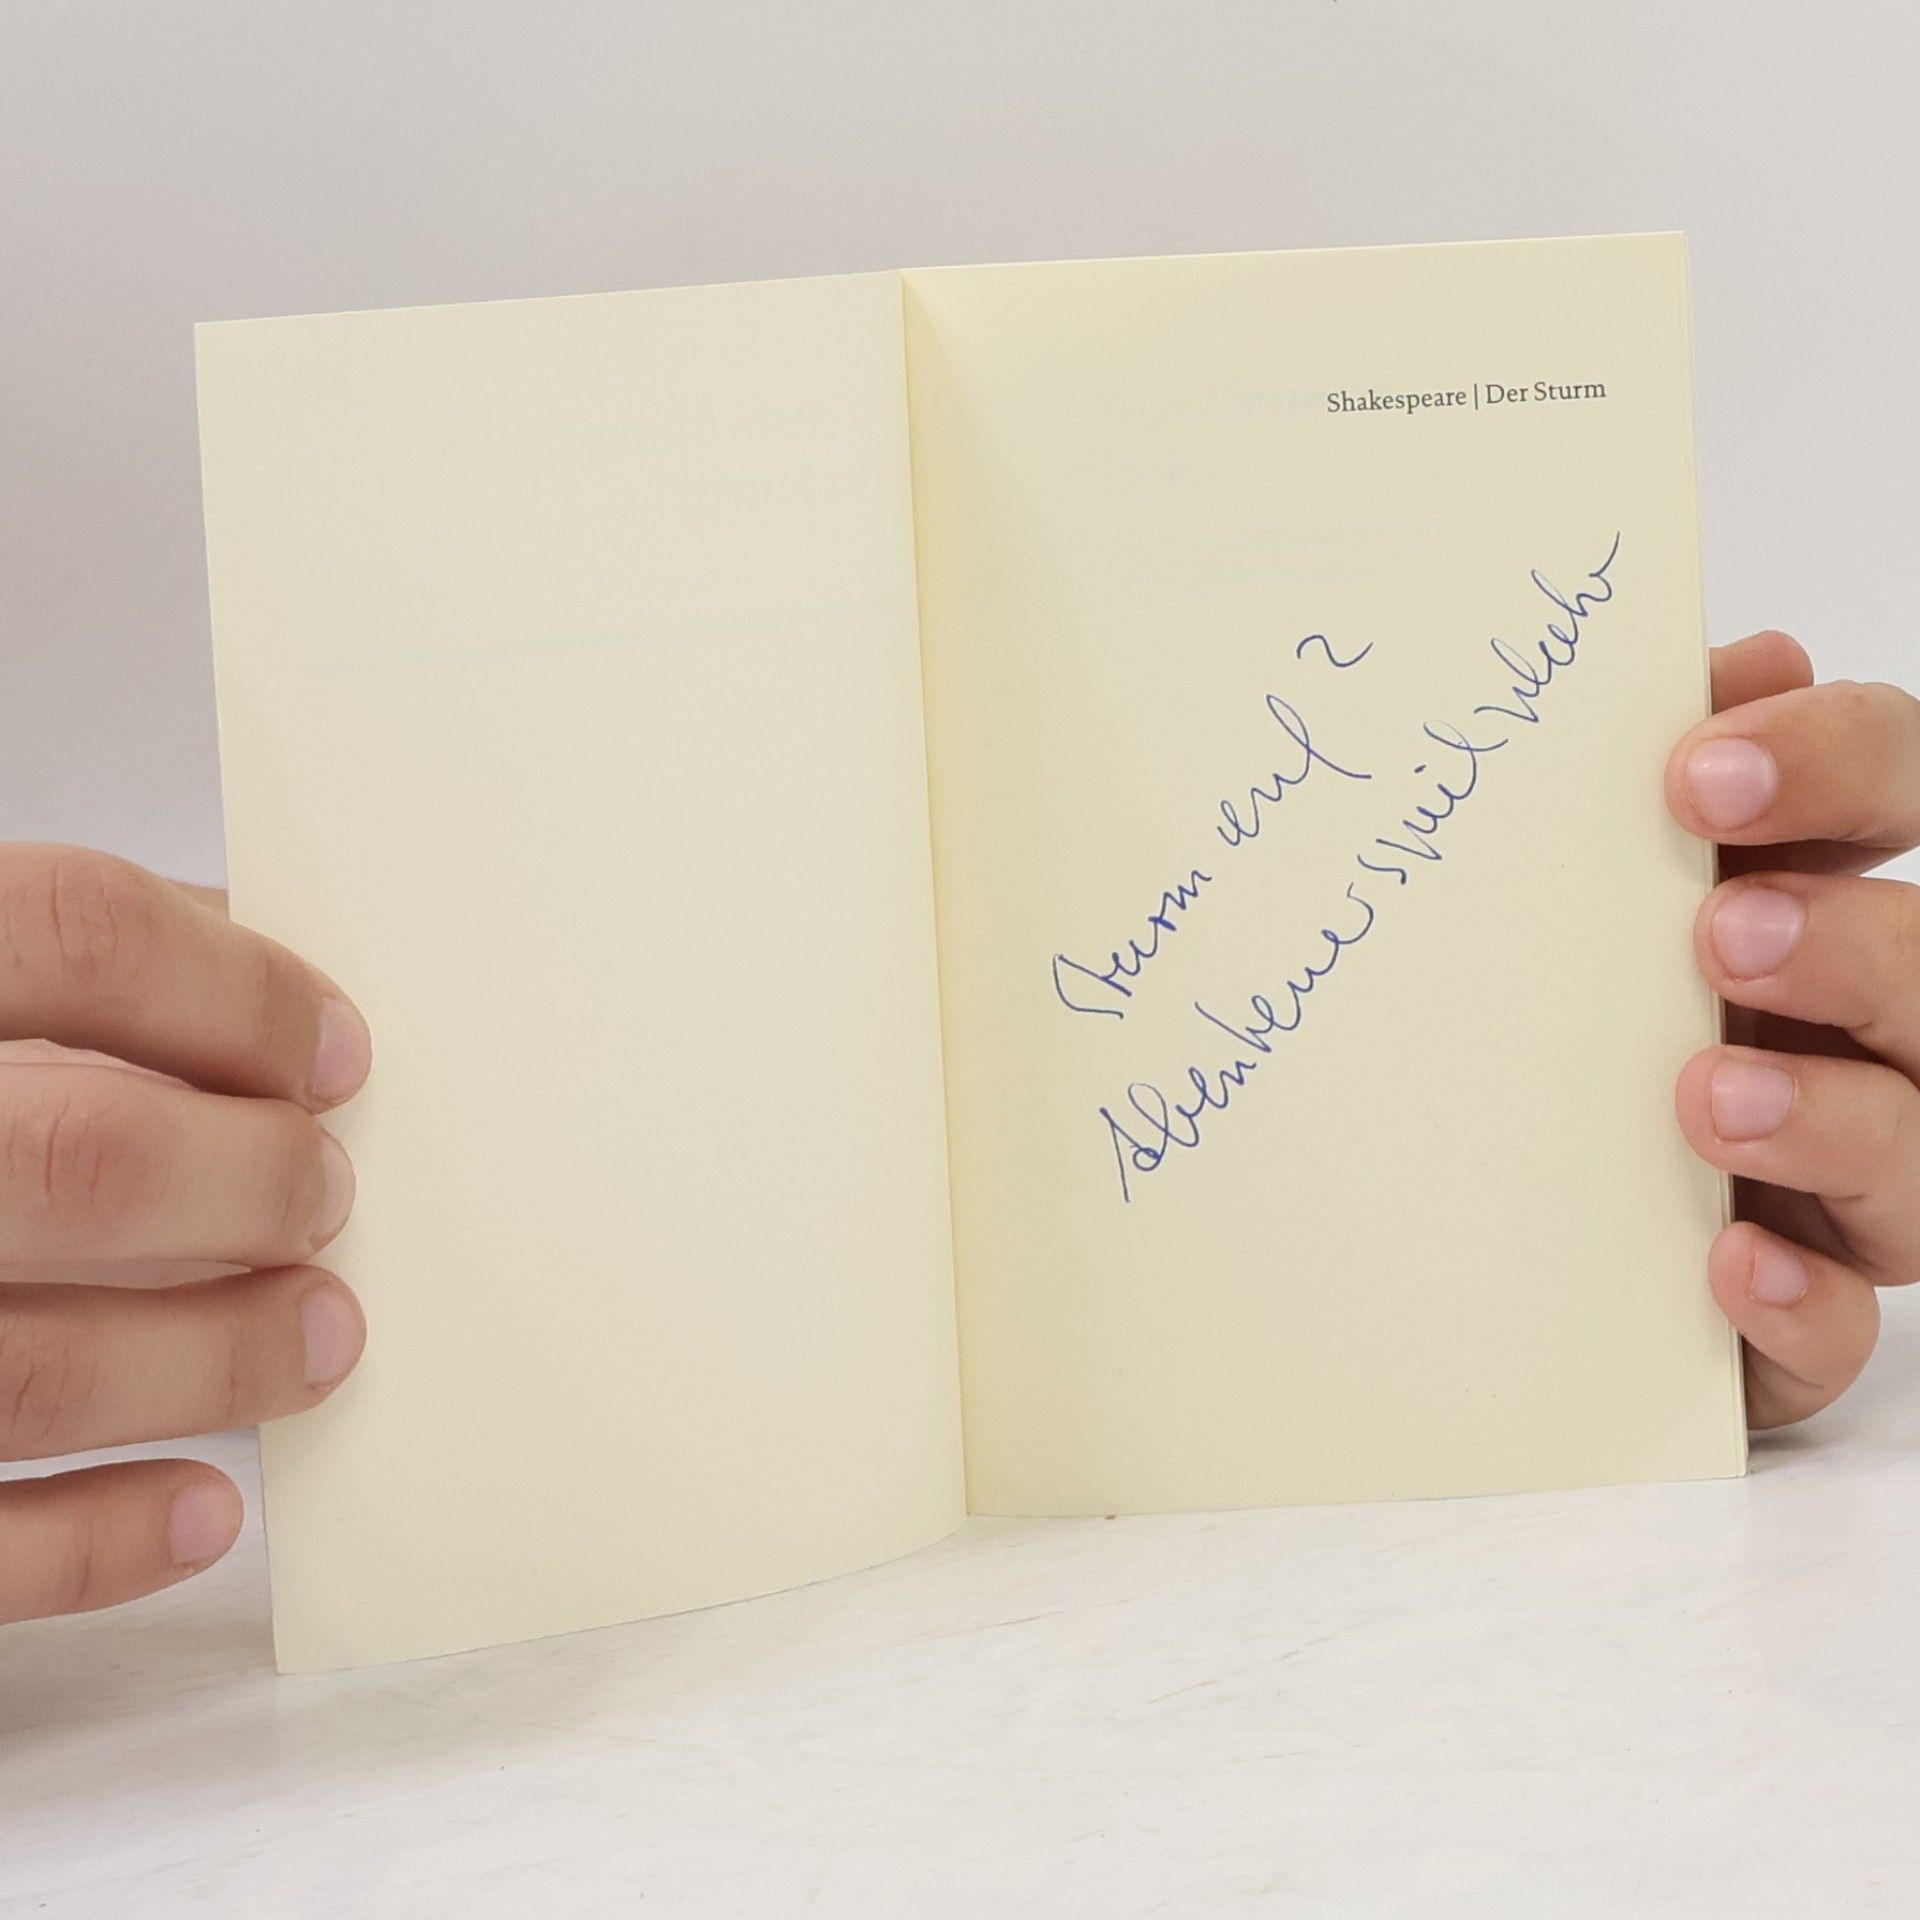 Shakespeare | Der Sturm
Sturm auf 2
Abenteuerspielplatz